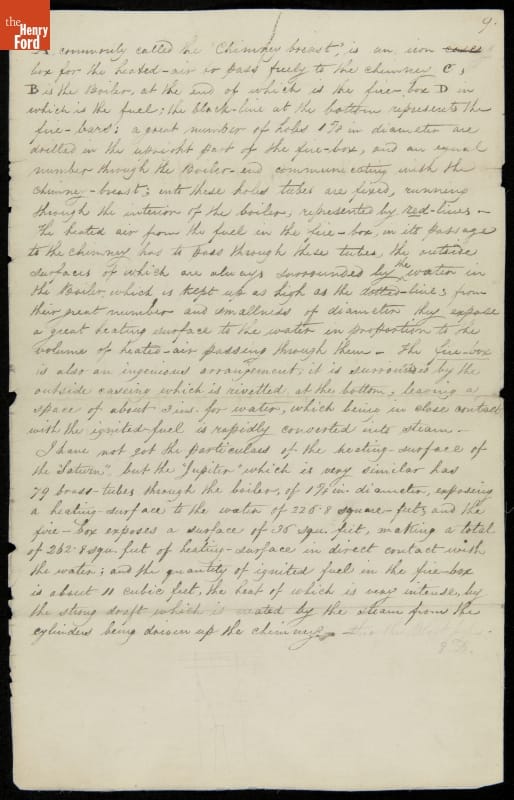 the
Henry
Ford
9.
A commonly called the "Chimney breast", is an iron
box for the heated-air to pass freely to the chimney C,
B is the Boiler, at the end of which is the fire-box D in
which is the fuel; the black-line at the bottom represents the
fire-bars; a great number of holes 1⅝ in diameter are
drilled in the upright part of the fire-box, and an equal
number through the Boiler-end communicating with the
chimney-breast; into these holes tubes are fixed, running
through the interior of the boiler, represented by red-lines –
The heated air from the fuel in the fire-box, in its passage
to the chimney has to pass through these tubes, the outside
surfaces of which are always surrounded by the water in
the Boiler, which is kept up as high as the dotted-line; from
their great number and smallness of diameter they expose
a great heating surface to the water in proportion to the
volume of heated-air passing through them – The fire-box
is also an ingenious arrangement; it is surrounded by the
outside caseing which is rivetted at the bottom, leaving a
space of about 3 ins. for water, which being in close contact
with the ignited-fuel is rapidly converted into steam –
I have not got the particulars of the heating-surface of
the "Saturn", but the "Jupiter" which is very similar has
79 brass-tubes through the boiler, of 1⅝ in. diameter, exposing
a heating-surface to the water of 226·8 square-feet; and the
fire-box exposes a surface of 36 squ. feet, making a total
of 262·8 squ. feet of heating-surface in direct contact with
the water; and the quantity of ignited fuel in the fire-box
is about 11 cubic feet, the heat of which is very intense, by
the strong draft which is created by the steam from the
cylinders being driven up the chimney –